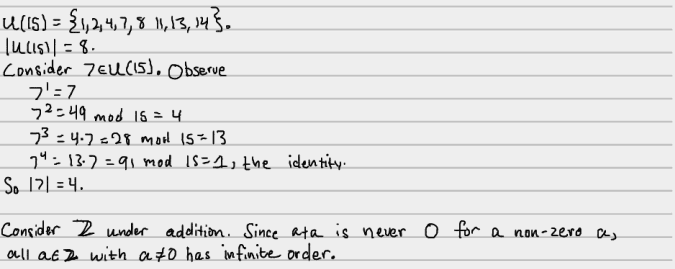 U(15) = {1,2,4,7,8 11,13,14}.
|U(15)| = 8.
Consider 7∈U(15). Observe
7¹=7
7²=49 mod 15 = 4
7³ = 4·7 = 28 mod 15 = 13
7⁴ = 13·7 = 91 mod 15 = 1, the identity.
So |7| = 4.
Consider ℤ under addition. Since a+a is never 0 for a non-zero a,
all a∈ℤ with a≠0 has infinite order.